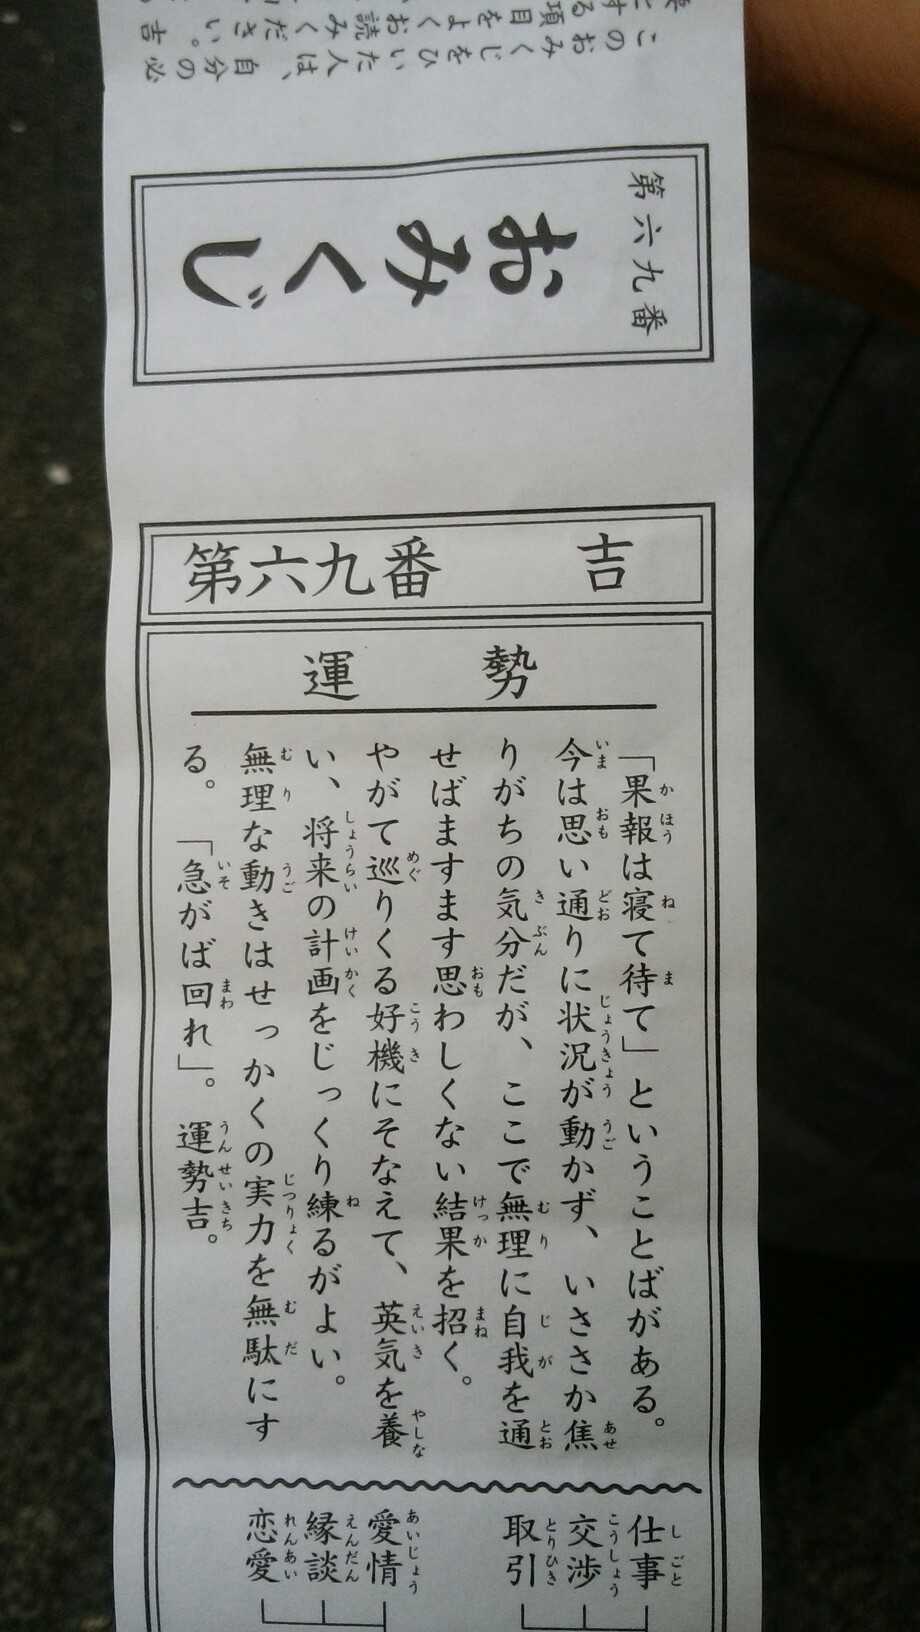 このおみくじをひいた人は、自分の
する項目をよくお読みください。吉
第六九番
おみくじ
第六九番 吉
運勢
「果報は寝て待て」ということばがある。
今は思い通りに状況が動かず、いささか焦
りがちの気分だが、ここで無理に自我を通
せばますます思わしくない結果を招く。
やがて巡りくる好機にそなえて、英気を養
い、将来の計画をじっくり練るがよい。
無理な動きはせっかくの実力を無駄にす
る。「急がば回れ」。運勢吉。
仕事
交渉
取引
愛情
縁談
恋愛